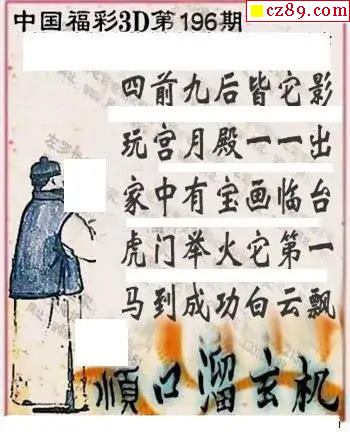 cz89.com
中国福彩3D第196期
四前九后皆它影
玩宫月殿一一出
家中有宝画临台
虎门举火它第一
马到成功白云飘
順口溜玄机